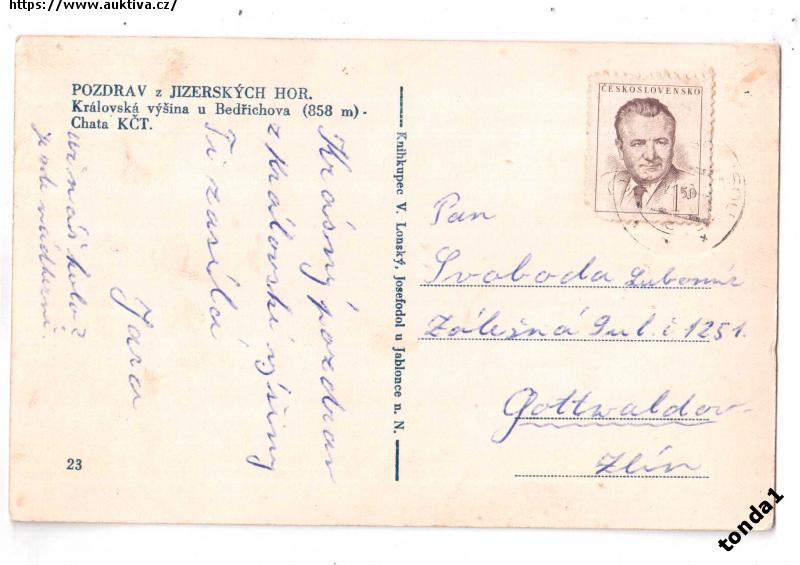 https://www.auktiva.cz/
POZDRAV z JIZERSKÝCH HOR.
Královská výšina u Bedřichova (858 m) -
Chata KČT.
Krásný pozdrav
z Královské výšiny
Ti zasílá
Jara
kolo?
Je zde nádherně.
23
Knihkupec V. Lonský, Josefodol u Jablonce n. N.
ČESKOSLOVENSKO
1.50
Pan
Svoboda Lubomír
Zálešná 9 ul. č 1251.
Gottwaldov-
Zlín
tonda1